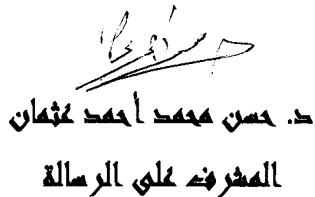 د. حسن محمد أحمد عثمان
المشرف على الرسالة